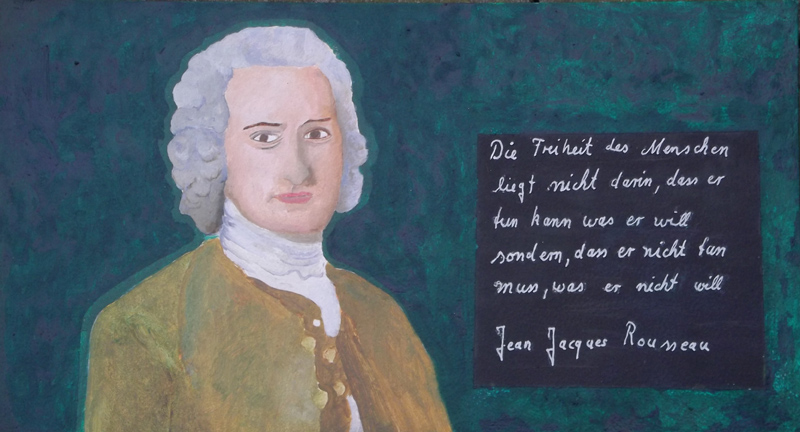 Die Friheit des Menschen
liegt nicht darin, dass er
tun kann was er will
sondern, dass er nicht tun
muss, was er nicht will
Jean Jacques Rousseau